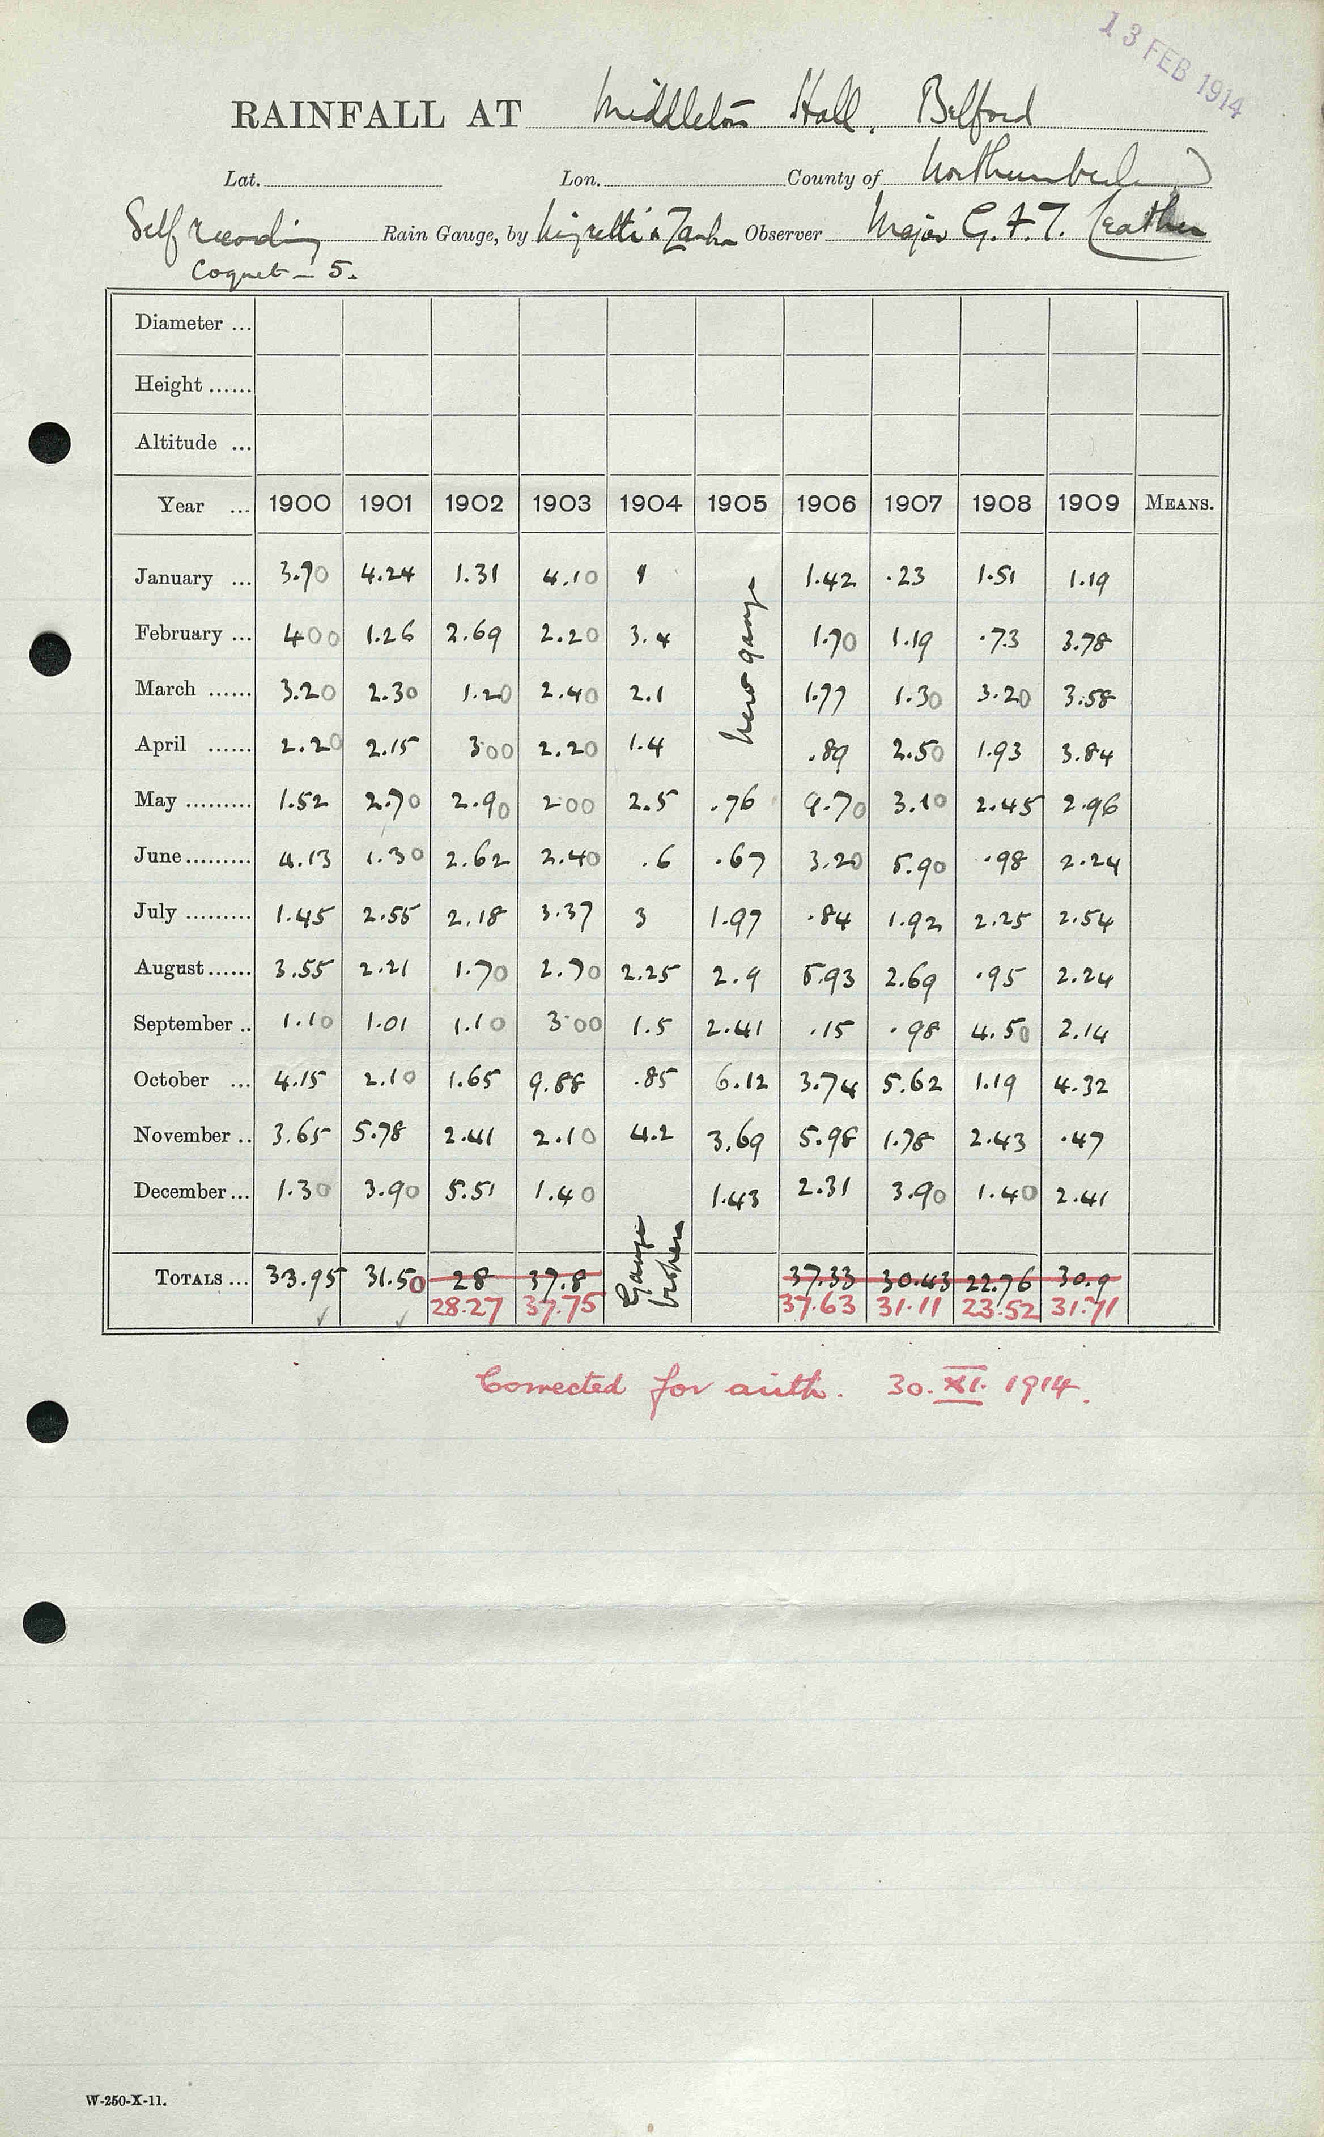 13 FEB 1914
RAINFALL AT Middleton Hall, Belford
Lat. Lon. County of Northumberland
Self recording Rain Gauge, by Negretti & Zambra Observer Major G. F. T. Leather
Coquet – 5.
Diameter ...
Height ......
Altitude ...
Year ... 1900 1901 1902 1903 1904 1905 1906 1907 1908 1909 MEANS.
January ... 3.70 4.24 1.31 4.10 1 1.42 .23 1.51 1.19
February ... 400 1.26 2.69 2.20 3.4 1.70 1.19 .73 3.78
March ...... 3.20 2.30 1.20 2.40 2.1 1.77 1.30 3.20 3.58
new gauge
April ...... 2.20 2.15 3.00 2.20 1.4 .89 2.50 1.93 3.84
May ......... 1.52 2.70 2.90 2.00 2.5 .76 9.70 3.10 2.45 2.96
June......... 4.13 1.30 2.62 2.40 .6 .67 3.20 5.90 .98 2.24
July ......... 1.45 2.55 2.18 3.37 3 1.97 .84 1.92 2.25 2.54
August...... 3.55 2.21 1.70 2.70 2.25 2.9 5.93 2.69 .95 2.24
September .. 1.10 1.01 1.10 3.00 1.5 2.41 .15 .98 4.50 2.14
October ... 4.15 2.10 1.65 9.88 .85 6.12 3.74 5.62 1.19 4.32
November .. 3.65 5.78 2.41 2.10 4.2 3.69 5.98 1.78 2.43 .47
December... 1.30 3.90 5.51 1.40 1.43 2.31 3.90 1.40 2.41
Gauge broken
TOTALS... 33.95 31.50 28 37.8 37.33 30.43 22.76 30.9
28.27 37.75 37.63 31.11 23.52 31.71
Corrected for arith. 30.XI.1914.
W-250-X-11.